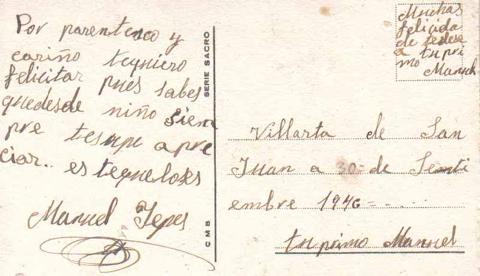 Por parentesco y
cariño tequiero
felicitar pues sabes
quedesde niño siem
pre tesupe apre
ciar.. es tequelo es
Manuel Yepes
C.M.B. SERIE SACRO
Muchas
felicida
de sedese
a tu pri
mo
Manuel
Villarta de San
Juan a 30 de Senti
embre 1946=.....
tu primo Manuel